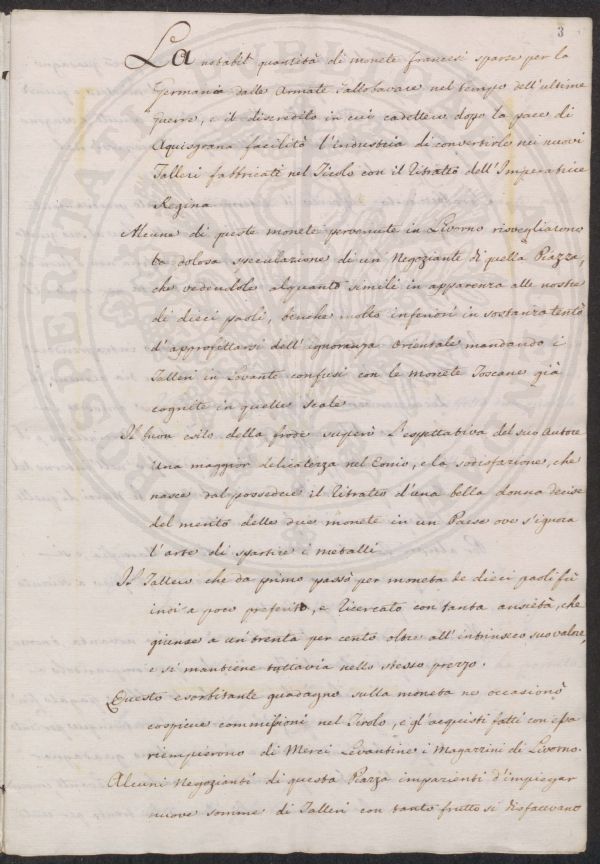 3
La notabil quantità di monete francesi sparse per la
Germania dalle Armate Gallobavare nel tempo dell'ultime
guerre, e il discredito in cui caddettero dopo la pace di
Aquisgrana facilitò l'industria di convertirle nei nuovi
Talleri fabbricati nel Tirolo con il Ritratto dell'Imperatrice
Regina
Alcune di queste monete pervenute in Livorno risvegliarono
la dolosa speculazione di un Negoziante di quella Piazza,
che vedendole alquanto simili in apparenza alle nostre
di dieci paoli, benche molto inferiori in sostanza tentò
d'approfittarsi dell'ignoranza Orientale mandando i
Talleri in Levante confusi con le monete Toscane già
cognite in quelle Scale
Il buon esito della frode superò l'espettativa del suo Autore
una maggior delicatezza nel Conio, e la sodisfazione, che
nasce dal possedere il Ritratto d'una bella donna decise
del merito delle due monete in un Paese ove s'ignora
l'arte di spartire i metalli
Il Tallero che da primo passò per moneta de dieci paoli fù
indi a poco preferito, e ricercato con tanta ansietà, che
giunse a un trenta per cento oltre all'intrinseco suo valore,
e si mantiene tuttavia nello stesso prezzo.
Questo esorbitante guadagno sulla moneta ne occasionò
cospicue commissioni nel Tirolo, e gl'acquisti fatti con essa
riempierono di Merci Levantine i Magazzini di Livorno.
Alcuni Negozianti di questa Piazza impazienti d'impiegar
nuove somme di Talleri con tanto frutto si disfacevano